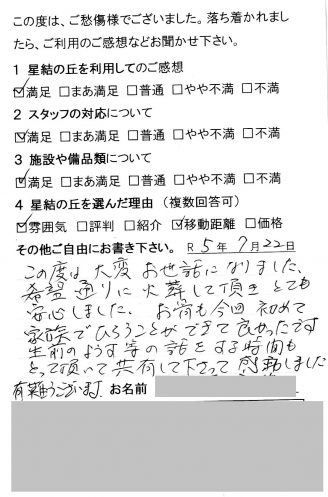 この度は、ご愁傷様でございました。落ち着かれまし
たら、ご利用のご感想などお聞かせ下さい。
1 星結の丘を利用してのご感想
☑満足 □まあ満足 □普通 □やや不満 □不満
2 スタッフの対応について
☑満足 □まあ満足 □普通 □やや不満 □不満
3 施設や備品類について
☑満足 □まあ満足 □普通 □やや不満 □不満
4 星結の丘を選んだ理由（複数回答可）
☑雰囲気 □評判 □紹介 ☑移動距離 □価格
その他ご自由にお書き下さい。 R 5年 7月22日
この度は大変お世話になりました、
希望通りに火葬して頂きとても
安心しました。お骨も今回初めて
家族でひろうことができて良かったです
生前のようす等の話をする時間も
とって頂いて共有して下さって感動しました
有難うございます お名前